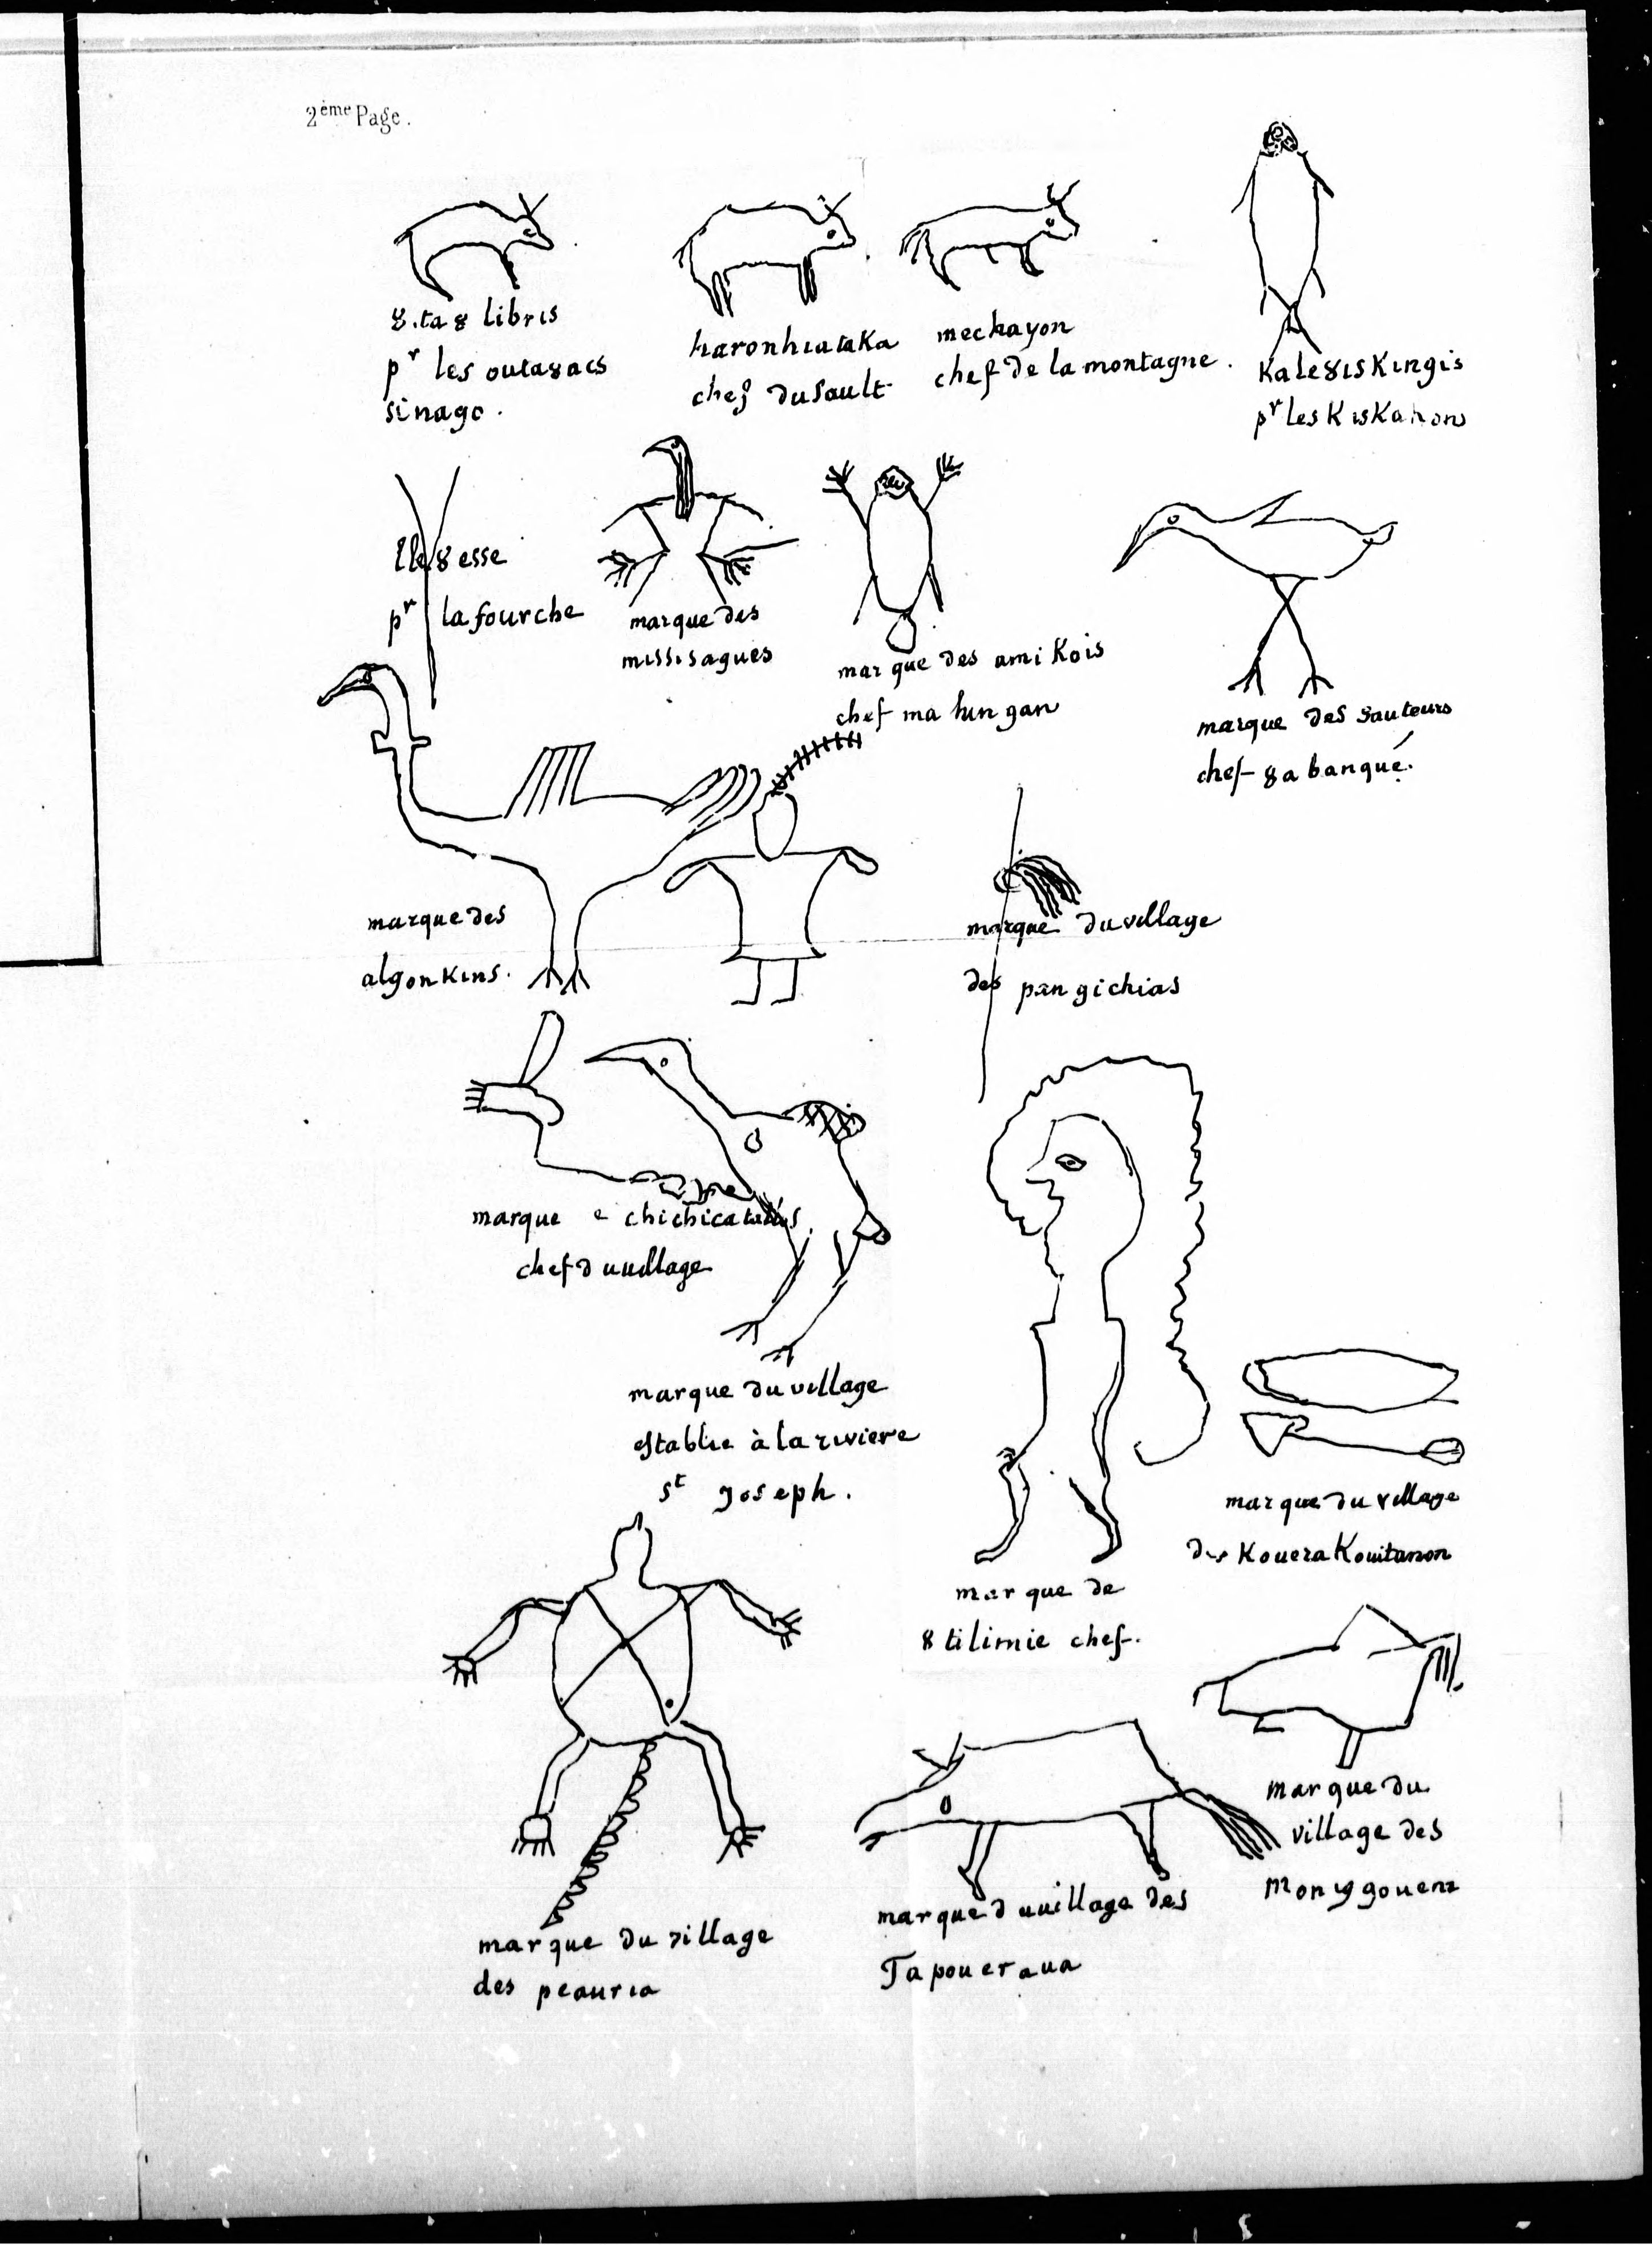 2ème Page.
8.ta8 libris
pr les outa8acs
sinago.
haronhiataKa
chef du Sault
mechayon
chef de la montagne.
Kale8isKingis
pr les KisKahons
lle8esse
pr la fourche
marque des
missisagues
marque des amiKois
chef mahingan
marque des Sauteurs
chef 8abanqué.
marque des
algonKins.
marque du village
des pangichias
marque e chichicatalis
chef du village
marque du village
establie à la riviere
st Joseph.
marque de
8tilimie chef.
marque du village
des KoueraKouitanon
marque du village
des peauria
marque du village des
Tapoueraua
marque du
village des